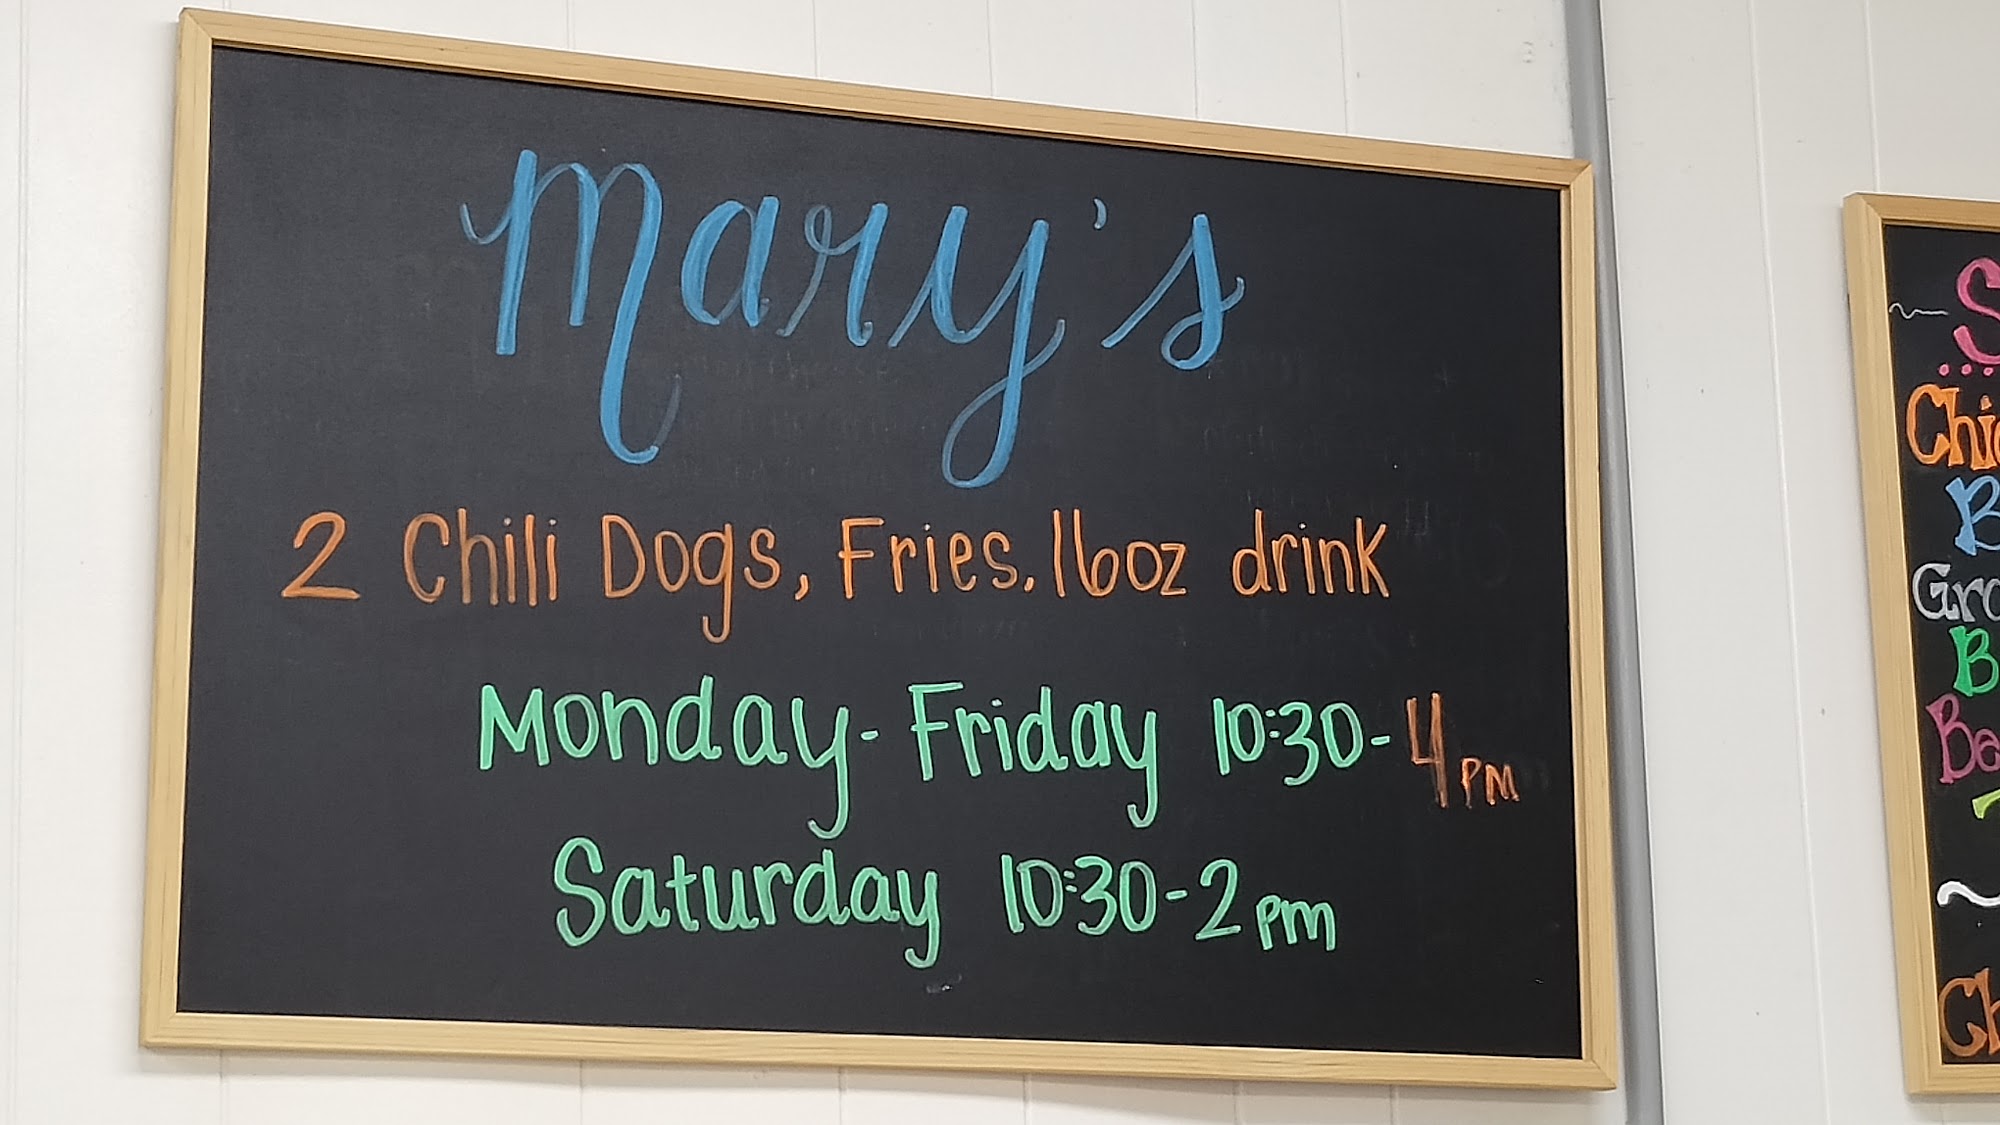 Mary's
2 Chili Dogs, Fries. 16oz drink
Monday - Friday 10:30 - 4 PM
Saturday 10:30 - 2 pm